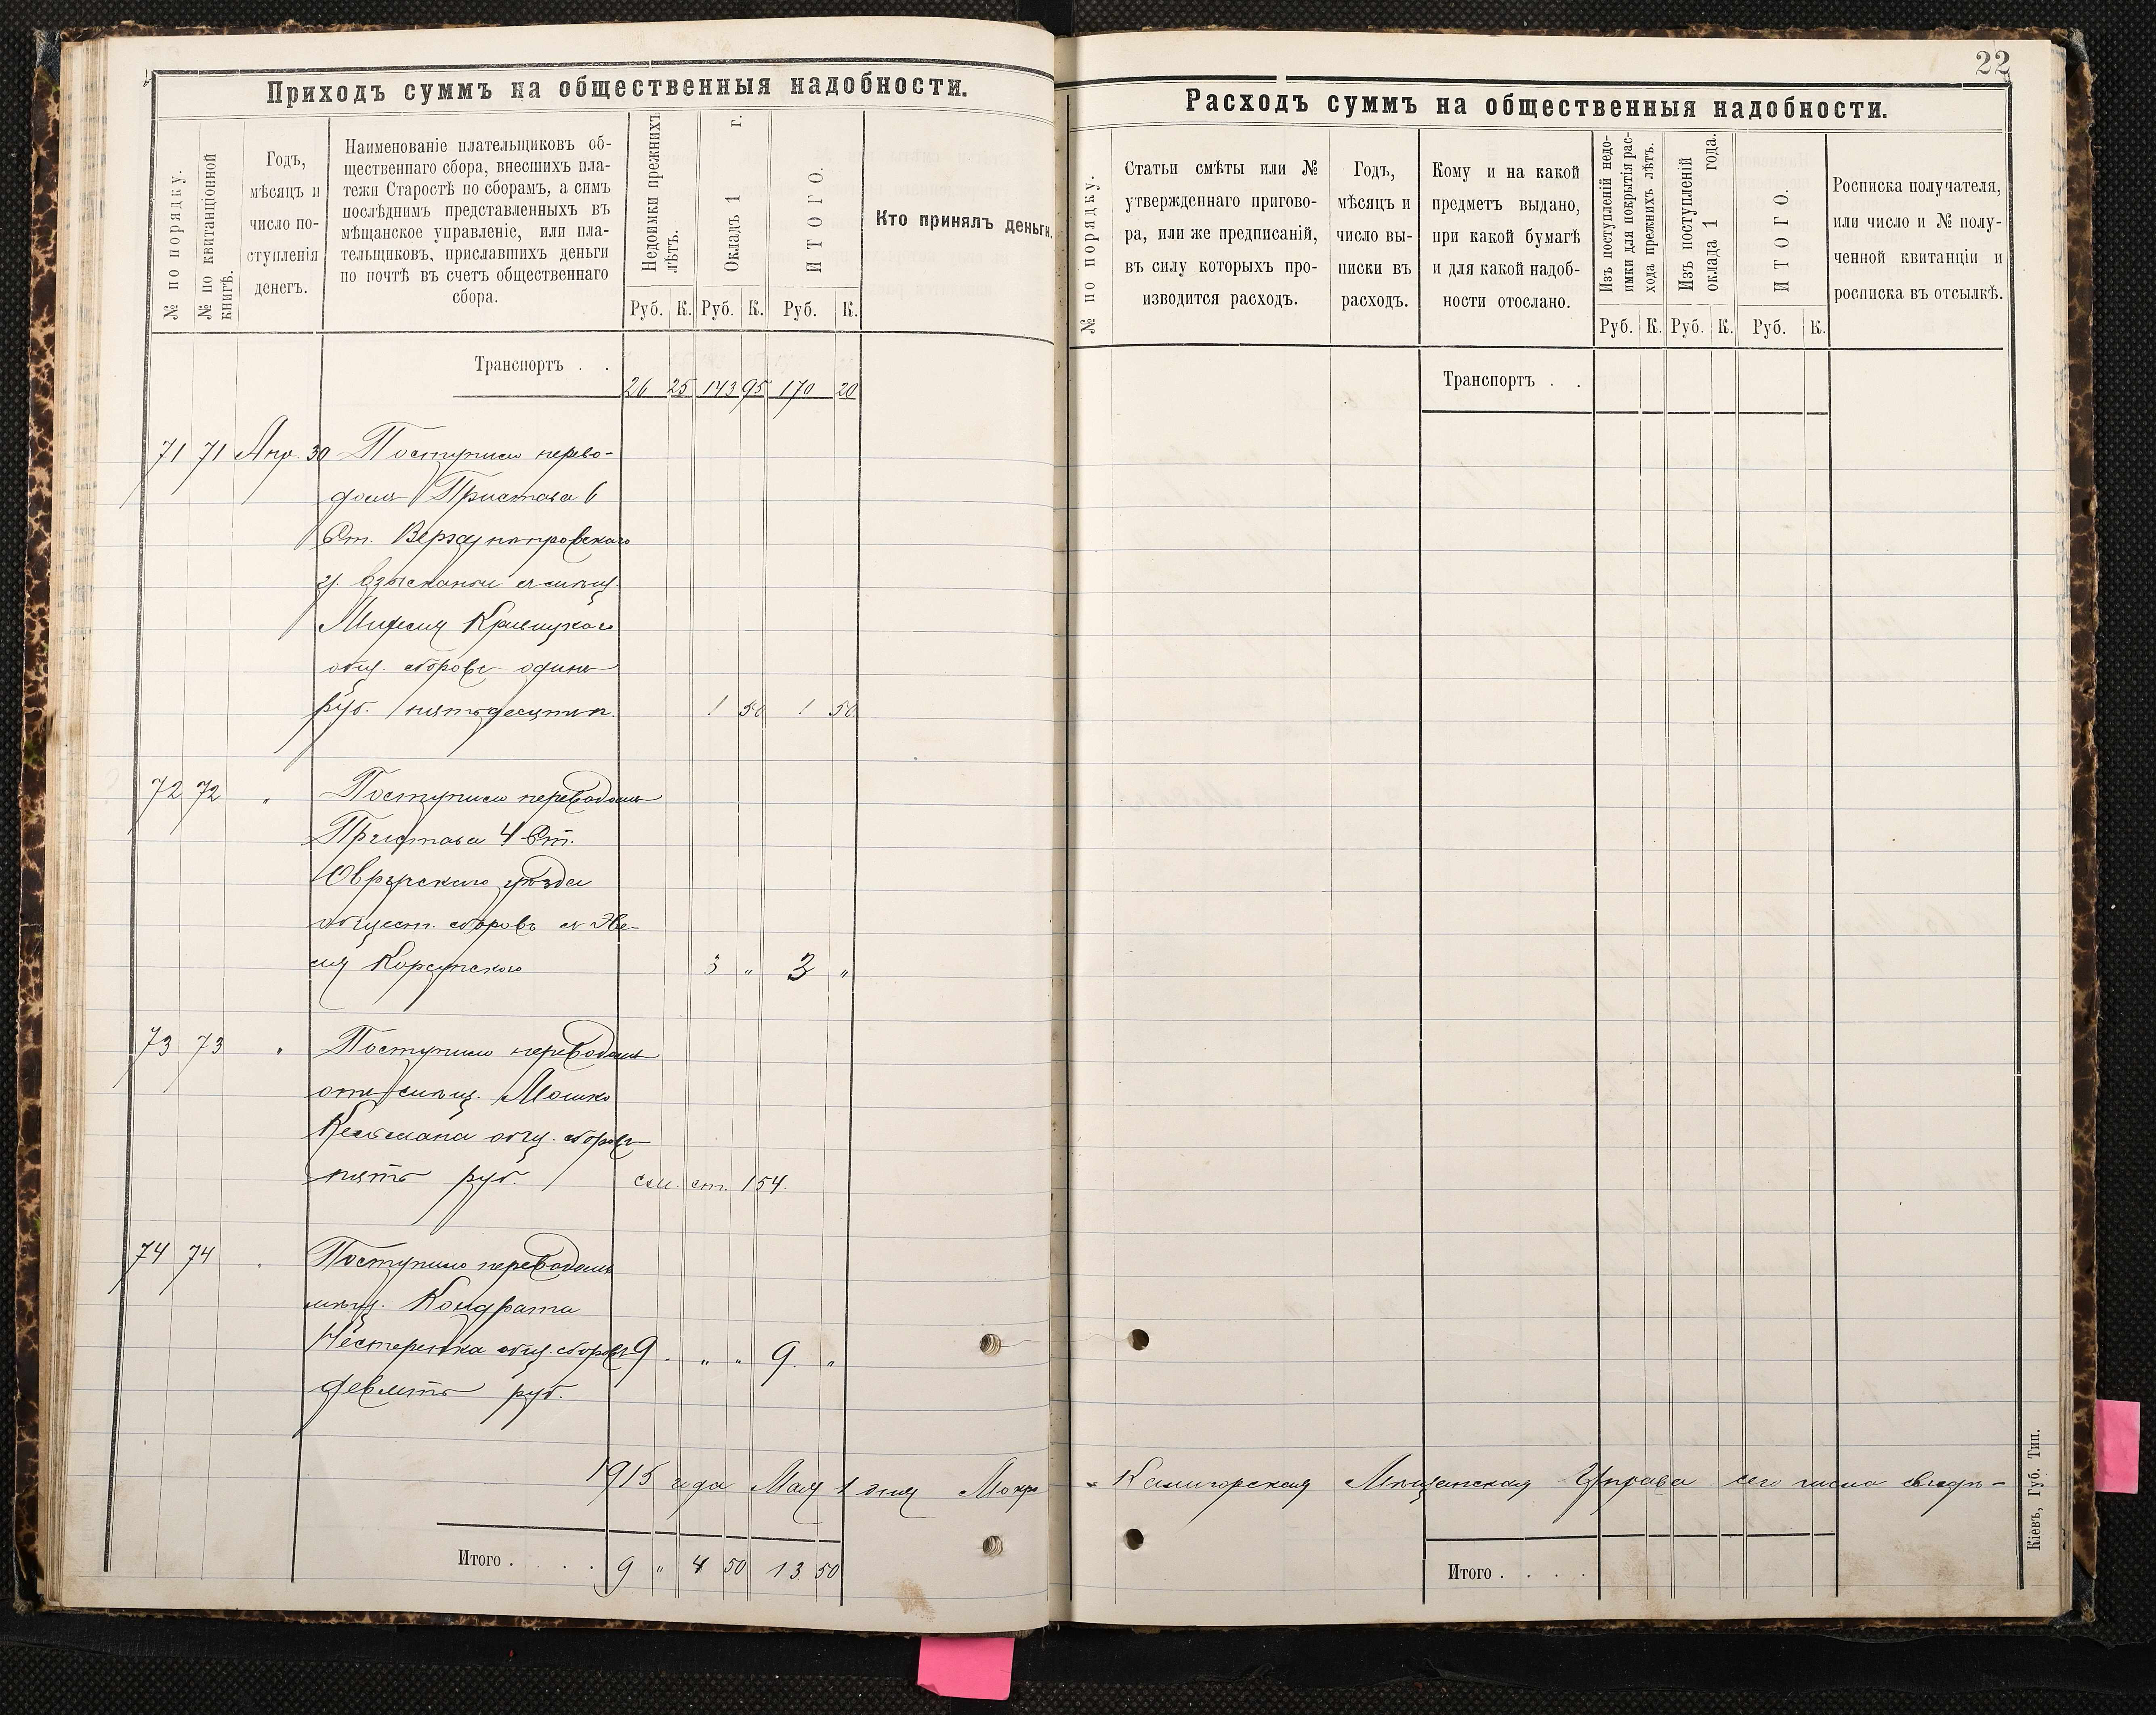 22
Приходъ суммъ на общественныя надобности.
№ по порядку.
№ по квитанціонной книгѣ.
Годъ,
мѣсяцъ и
число по-
ступленія
денегъ.
Наименованіе плательщиковъ об-
щественнаго сбора, внесшихъ пла-
тежи Старостѣ по сборамъ, а симъ
послѣднимъ представленныхъ въ
мѣщанское управленіе, или пла-
тельщиковъ, приславшихъ деньги
по почтѣ въ счетъ общественнаго
сбора.
Недоимки прежнихъ лѣтъ.
Окладъ 1 г.
ИТОГО.
Кто принялъ деньги.
Руб. К. Руб. К. Руб. К.
Транспортъ . .
26 25 143 95 170 20
71 71 Апр. 30 Поступило перево-
домъ Пристава 6
Ст. Верхнднпровскаго
у. взысканы съ мѣщ.
Краницкаго
общ. сборовъ одинъ
руб. пятьдесятъ к. 1 50 1 50
72 72 " Поступило переводомъ
Пристава 4 Ст.
уѣзда
общест. сборовъ съ Эве-
ля Корсунскаго 3 " 3 "
73 73 " Поступило переводомъ
отъ мѣщ. Мошко
Кельмана общ. сборовъ
пять руб. см. ст. 154.
74 74 " Поступило переводомъ
мѣщ. Кондрата
Нестеренка общ. сборовъ 9 " " " 9 "
девять руб.
1915 года Мая 1 дня Мокро
Итого . . . . 9 " 4 50 13 50
Расходъ суммъ на общественныя надобности.
№ по порядку.
Статьи смѣты или №
утвержденнаго пригово-
ра, или же предписаній,
въ силу которыхъ про-
изводится расходъ.
Годъ,
мѣсяцъ и
число вы-
писки въ
расходъ.
Кому и на какой
предметъ выдано,
при какой бумагѣ
и для какой надоб-
ности отослано.
Изъ поступленій недо-
имки для покрытія рас-
хода прежнихъ лѣтъ.
Изъ поступленій
оклада 1 года.
ИТОГО.
Росписка получателя,
или число и № полу-
ченной квитанціи и
росписка въ отсылкѣ.
Руб. К. Руб. К. Руб. К.
Транспортъ . .
- Калигорская Мѣщанская Управа сего числа свидѣ-
Итого . . . .
Кіевъ, Губ. Тип.